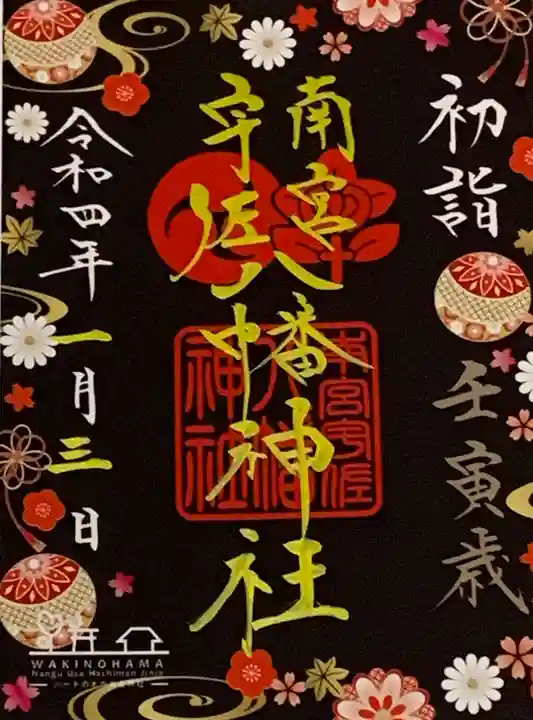 初詣
壬寅歳
南宮
宇佐
八幡神社
南宮宇佐
八幡
神社
令和四年一月三日
WAKINOHAMA
Nangu Usa Hachiman Jinja